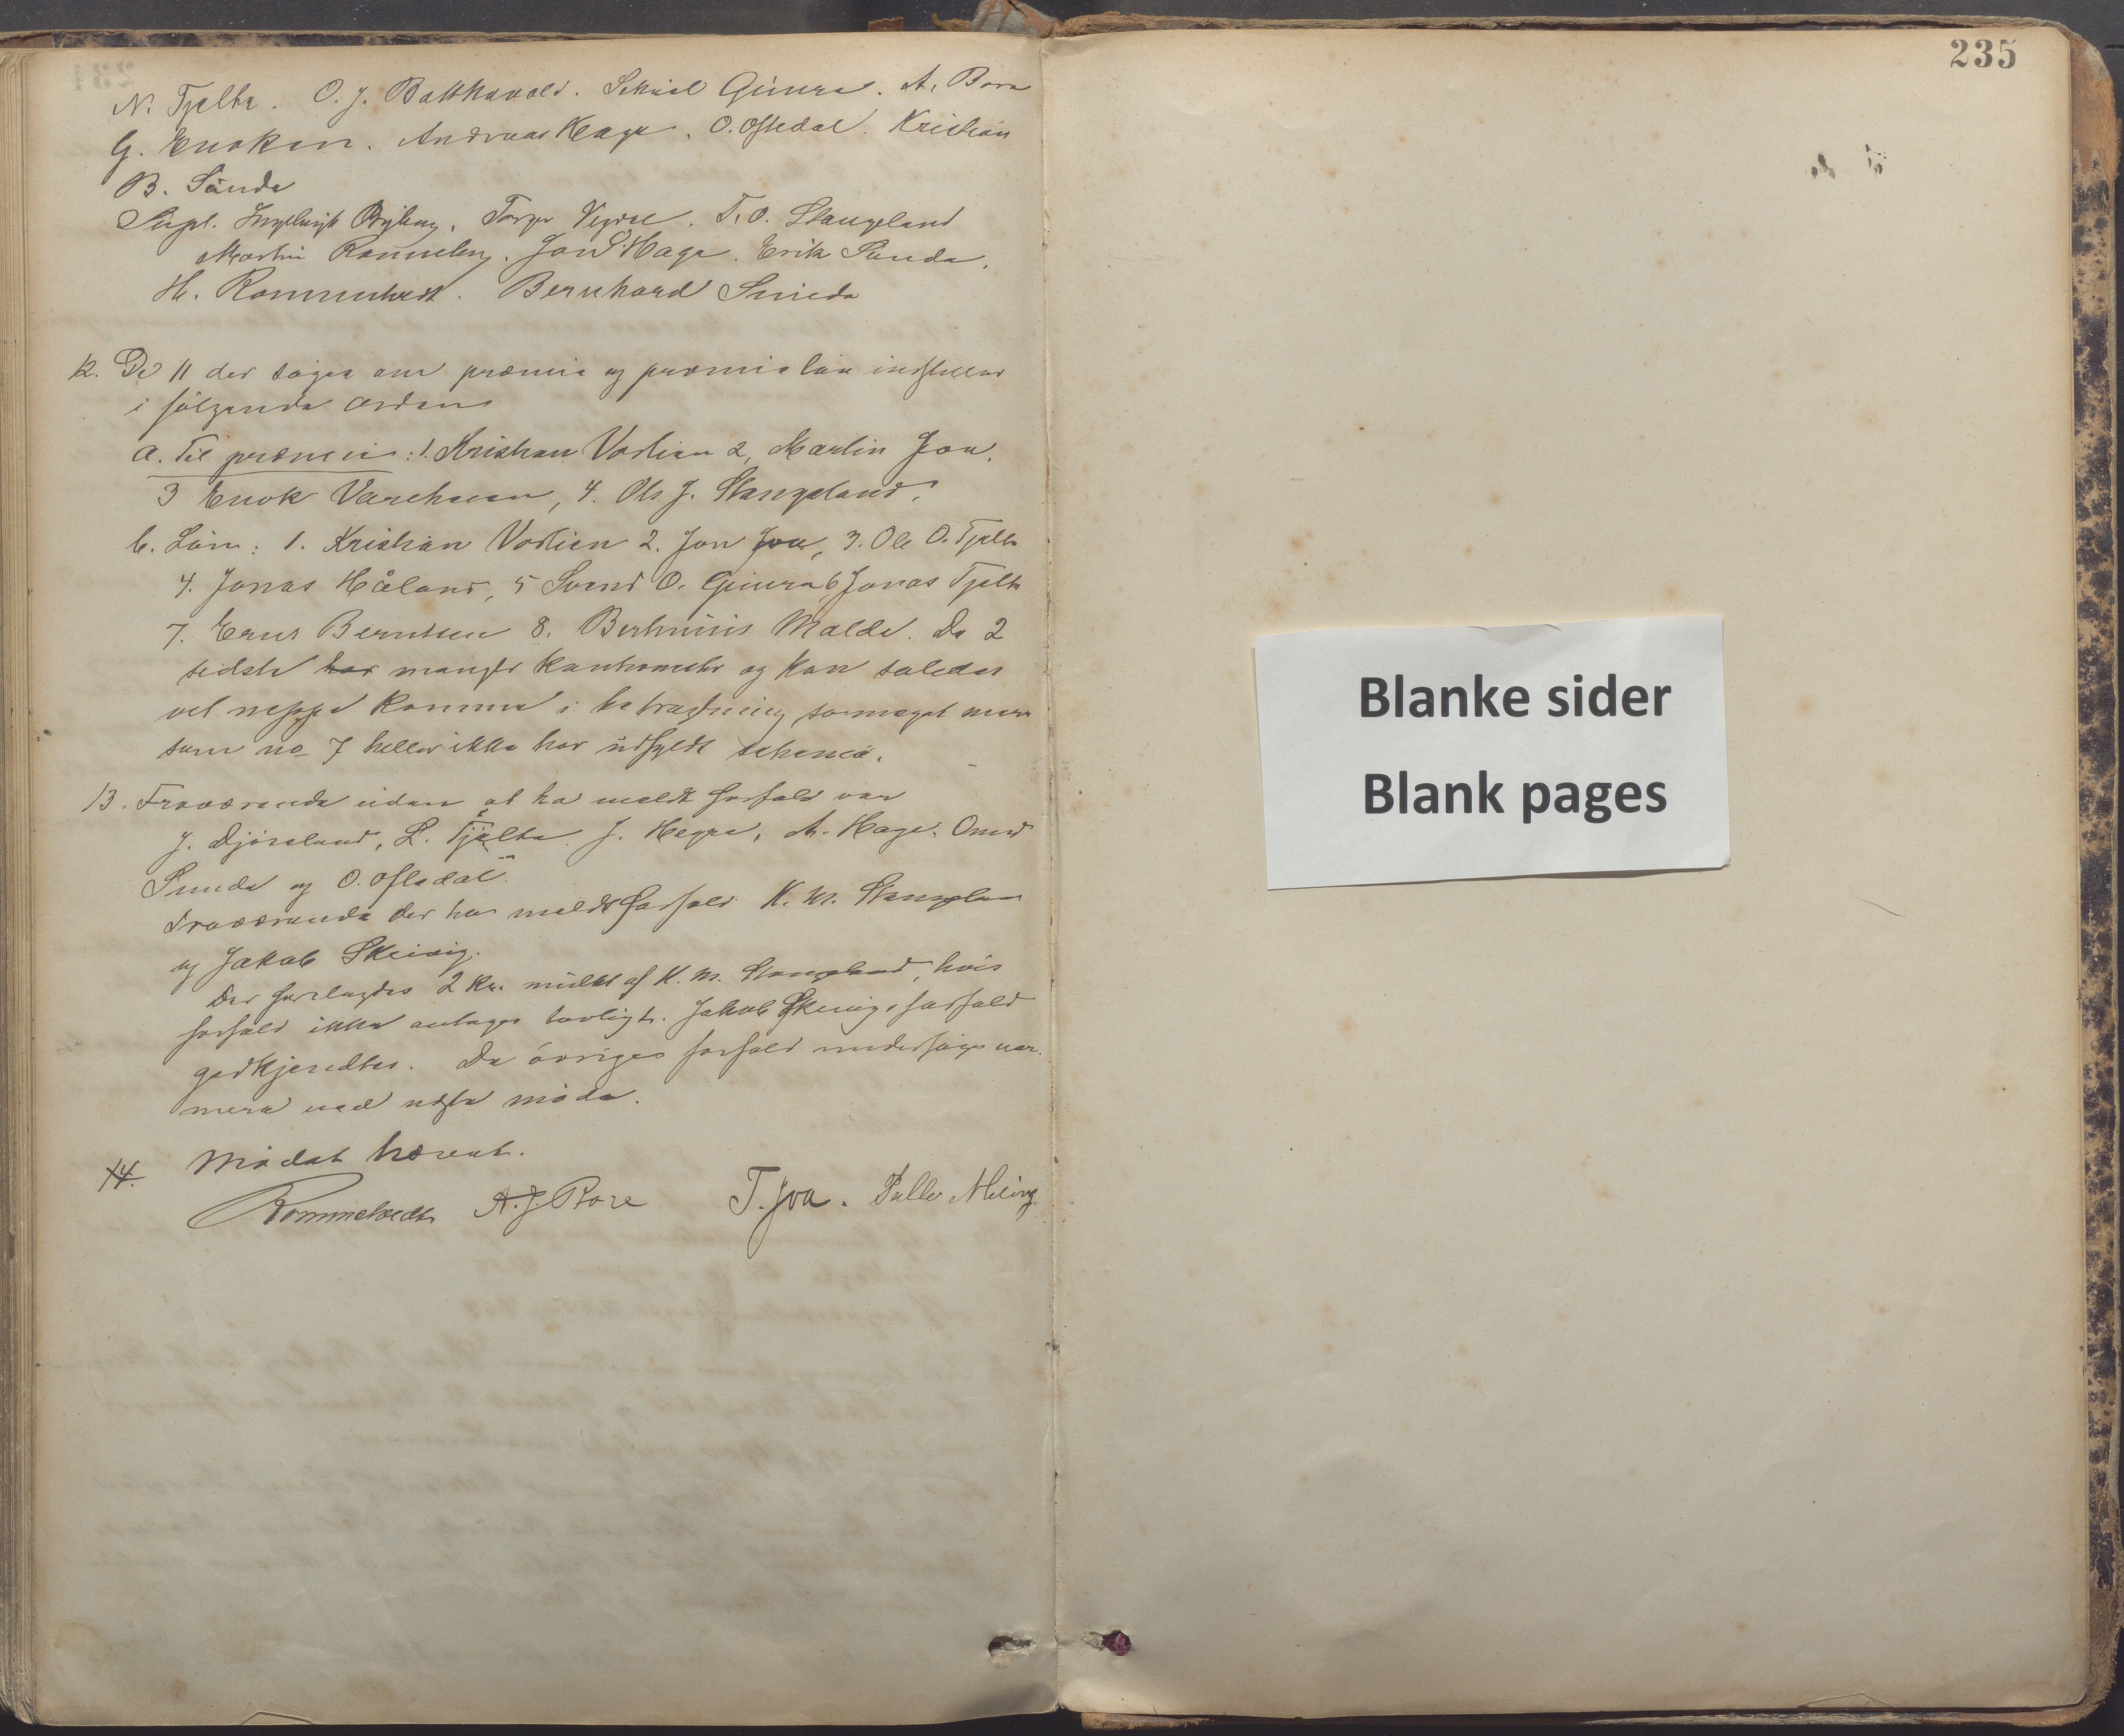 N. Tjelta. O. J. Bottkavold. Sekiel Gimra. A. Bore
G. Enoksen. Andreas Haga. O. Oftedal. Kristian
B. Sunde
Supl. Ingebrigt Byberg, Torger Vigdel. T. O. Stangeland
Martin Rommeln. Jon P. Haga. Erik Sunde.
H. Rommetvedt. Bernhard Sunde
12. De 11 der søger om præmie og præmielån indstilles
i følgende orden
a. Til præmie: 1. Kristian Vodlien 2, Martin Joa.
3 Enok Varehaven, 4. Ole J. Stangeland.
b. Lån: 1. Kristian Vodlien 2. Jon Joa, 3. Ole O. Tjelta
4. Jonas Håland, 5 Svend O. Gimra 6 Jonas Tjelta
7. Ernst Berntsen 8. Berhinius Malde. De 2
sidste har mangler kautionister og kan således
vel neppe komme i betragtning så meget mere
som no 7 heller ikke har udfyldt schema.
13. Fraværende uden at ha meldt forfald var
J. Djörsland, L. Tjelta. J. Hegre, A. Haga. Omund
Sunde og O. Oftedal.
Fraværende der har meldt forfald K. M. Stangeland
og Jakob Skeivig.
Der forelagdes 2 Kr. mulkt af K. M. Stangeland, hvis
forfald ikke antages lovligt. Jakob Skeivigs forfald
godkjendtes. De övriges forfald undersøges nær-
mere ved næste møde.
14. Mødet hævet.
Rommetvedt A. J. Bore T. Joa. Palle Meling
235
Blanke sider
Blank pages